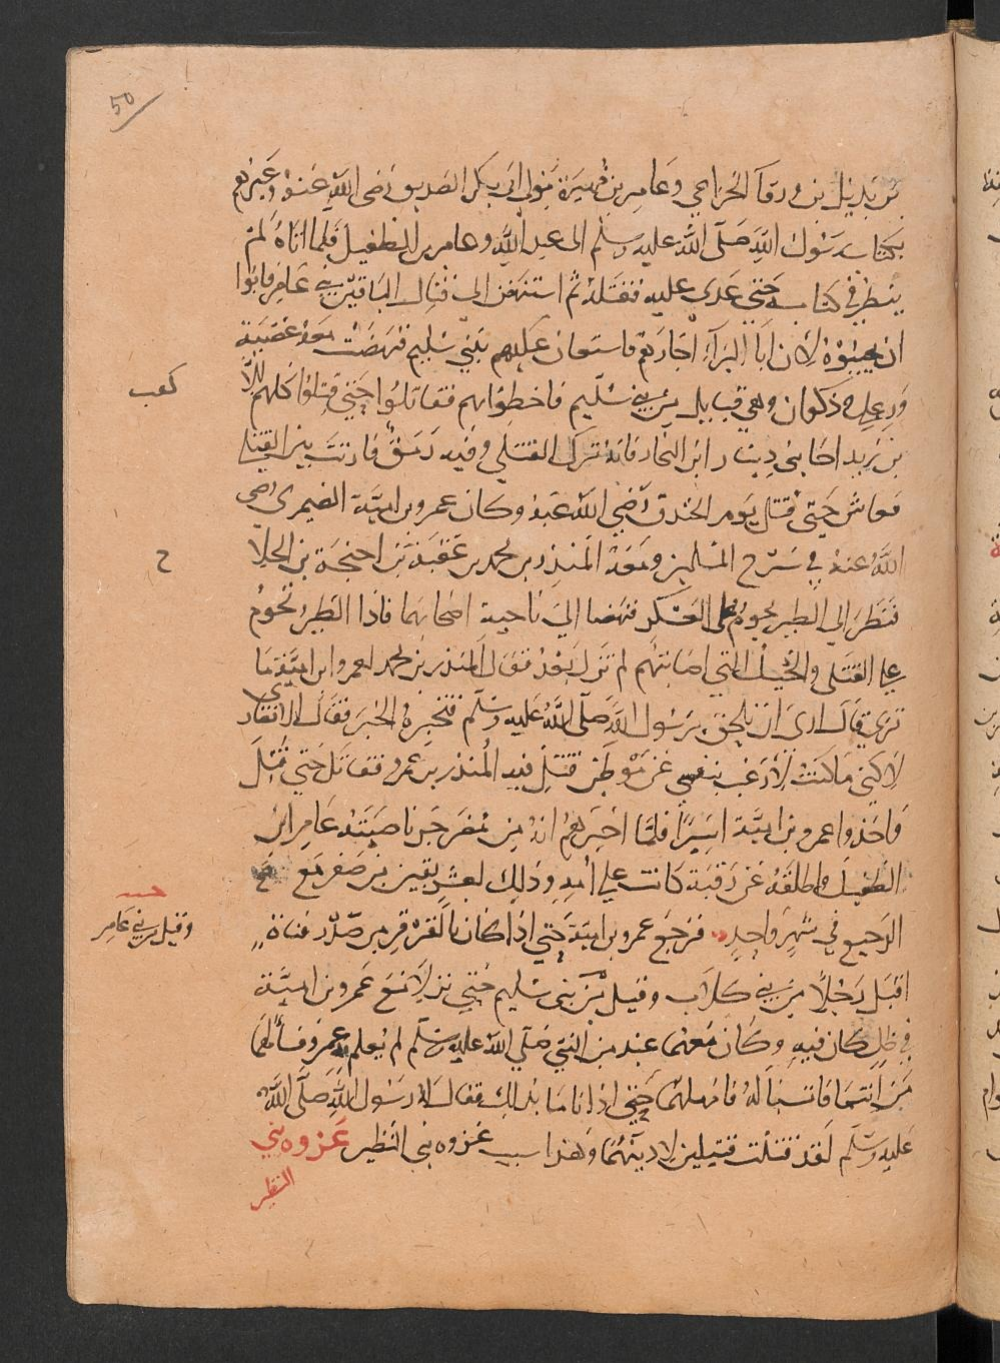 50
بن بديل بن ورقآ الخزاعي وعامر بن فهيرة مولى ابي بكر الصديق رضى الله عنه وغيرهم
بكتاب رسول الله صلى الله عليه وسلم الى عبد الله وعامر بن الطفيل فلما اتاه لم
ينظر في كتابه حتى عدى عليه فقتله ثم استنهض الى قتال الباقين بني عامر فابوا
ان يجيبوه لان ابا البرآء اجارهم فاستعان عليهم بني سليم فنهضت معه عصية
ورعل وذكوان وهي قبايل من بني سليم فاحطوا بهم فقاتلوا حتى قتلوا كلهم الا
كعب
بن زيد اخا بني دينار ابن النجار فانه ترك القتلى وفيه رمق فارتث بين القتلى
فعاش حتى قتل يوم الخندق رضي الله عنه وكان عمرو بن امية الضيمرى رضى
الله عنه في سرح المسلمين ومعه المنذر بن محمد بن عقبة بن احيحة بن الجلا
ح
فنظرا الى الطير يحوم على العسكر فنهضا الى ناحية اصحابهما فاذا الطير تحوم
على القتلى والخيل التي اصابتهم لم تزل بعد فقال المنذر بن محمد لعمرو ابن امية ما
ترى قال ارى ان نلحق برسول الله صلى الله عليه وسلم فنخبره الخبر فقال الانصارى
لاكني ما كنت لارغب بنفسي عن موطن قتل فيه المنذر بن عمرو فقاتل حتى قتل
واخذوا عمرو بن امية اسيرا فلما اخبرهم انه من مضر جز ناصيته عامر ابن
الطفيل واطلقه عن رقبة كانت على امه وذلك لعشر بقين من صفر مع
الرجيع في شهر واحد فرجع عمرو بن امية حتى اذا كان بالقرقرة من صدر قناة
اقبل رجلان من بني كلاب وقيل من بني سليم حتى نزلا مع عمرو بن امية
وقيل من بني عامر
في ظل كان فيه وكان معهما عهد من النبي صلى الله عليه وسلم لم يعلم به عمرو فسألهما
من انتما فانتسبا له فامهلهما حتى اذا ناما بذلك فقال له رسول الله صلى الله
عليه وسلم لقد قتلت قتيلين لادينهما وهذا سبب غزوه بني النظير غزوه بني
النظير